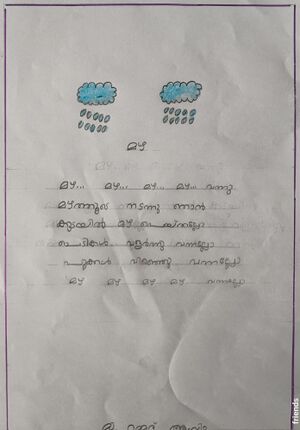 മഴ
മഴ... മഴ... മഴ... മഴ... വന്നു
മഴത്തൂടെ നടന്നു ഞാൻ
കുടയിൽ മഴ പെയ്തല്ലോ
ചെടികൾ വളർന്നു വന്നല്ലോ
പൂക്കൾ വിരിഞ്ഞു വന്നല്ലോ
മഴ മഴ മഴ മഴ വന്നല്ലോ
friends